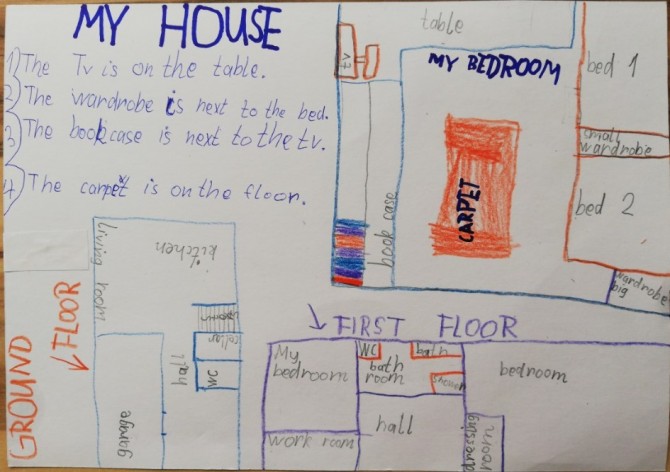 MY HOUSE
1) The Tv is on the table.
2) The wardrobe is next to the bed.
3) The bookcase is next to the tv.
4) The carpet is on the floor.
table
tv
MY BEDROOM
bed 1
small
wardrobe
bed 2
wardrobe
big
book case
CARPET
GROUND
FLOOR
living room
kitchen
hall
WC
garage
FIRST FLOOR
My
bedroom
WC
bath
room
bath
shower
bedroom
work room
hall
dressing
room